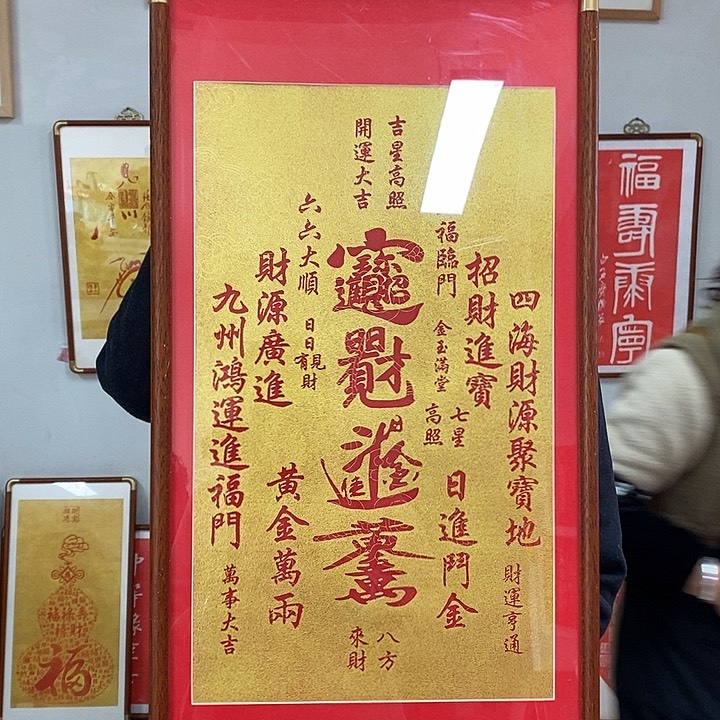 四海財源聚寶地
財運亨通
招財進寶
日進鬥金
福臨門
金玉滿堂
七星
高照
吉星高照
開運大吉
八方
來財
六六大順
日日有見財
財源廣進
黃金萬兩
九州鴻運進福門
萬事大吉
福壽康寧
福